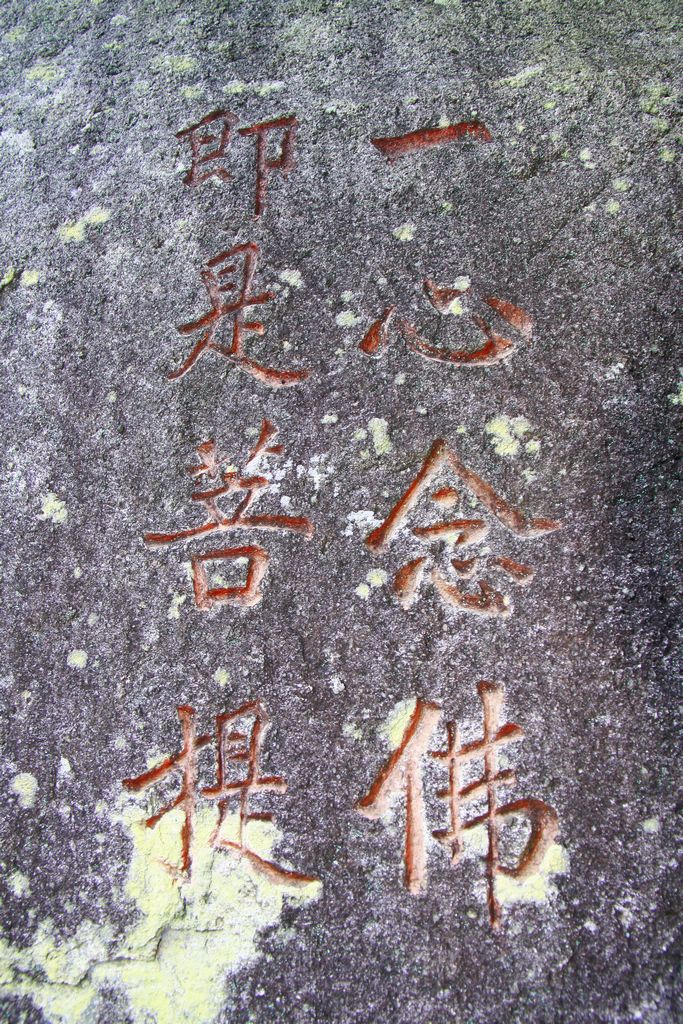 一心念佛
即是菩提